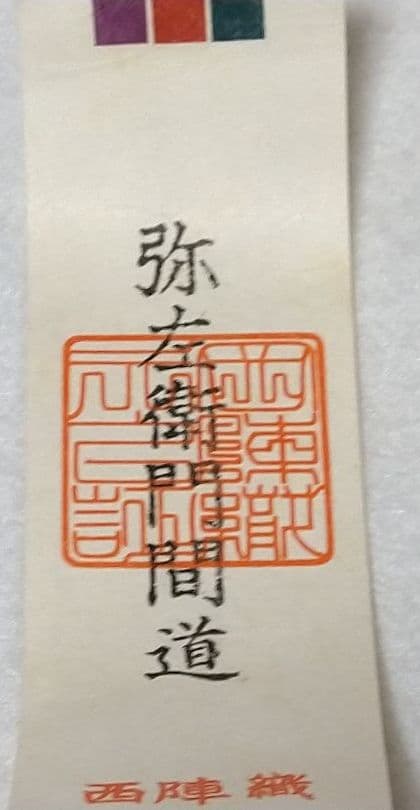 弥左衛門間道
西陣織